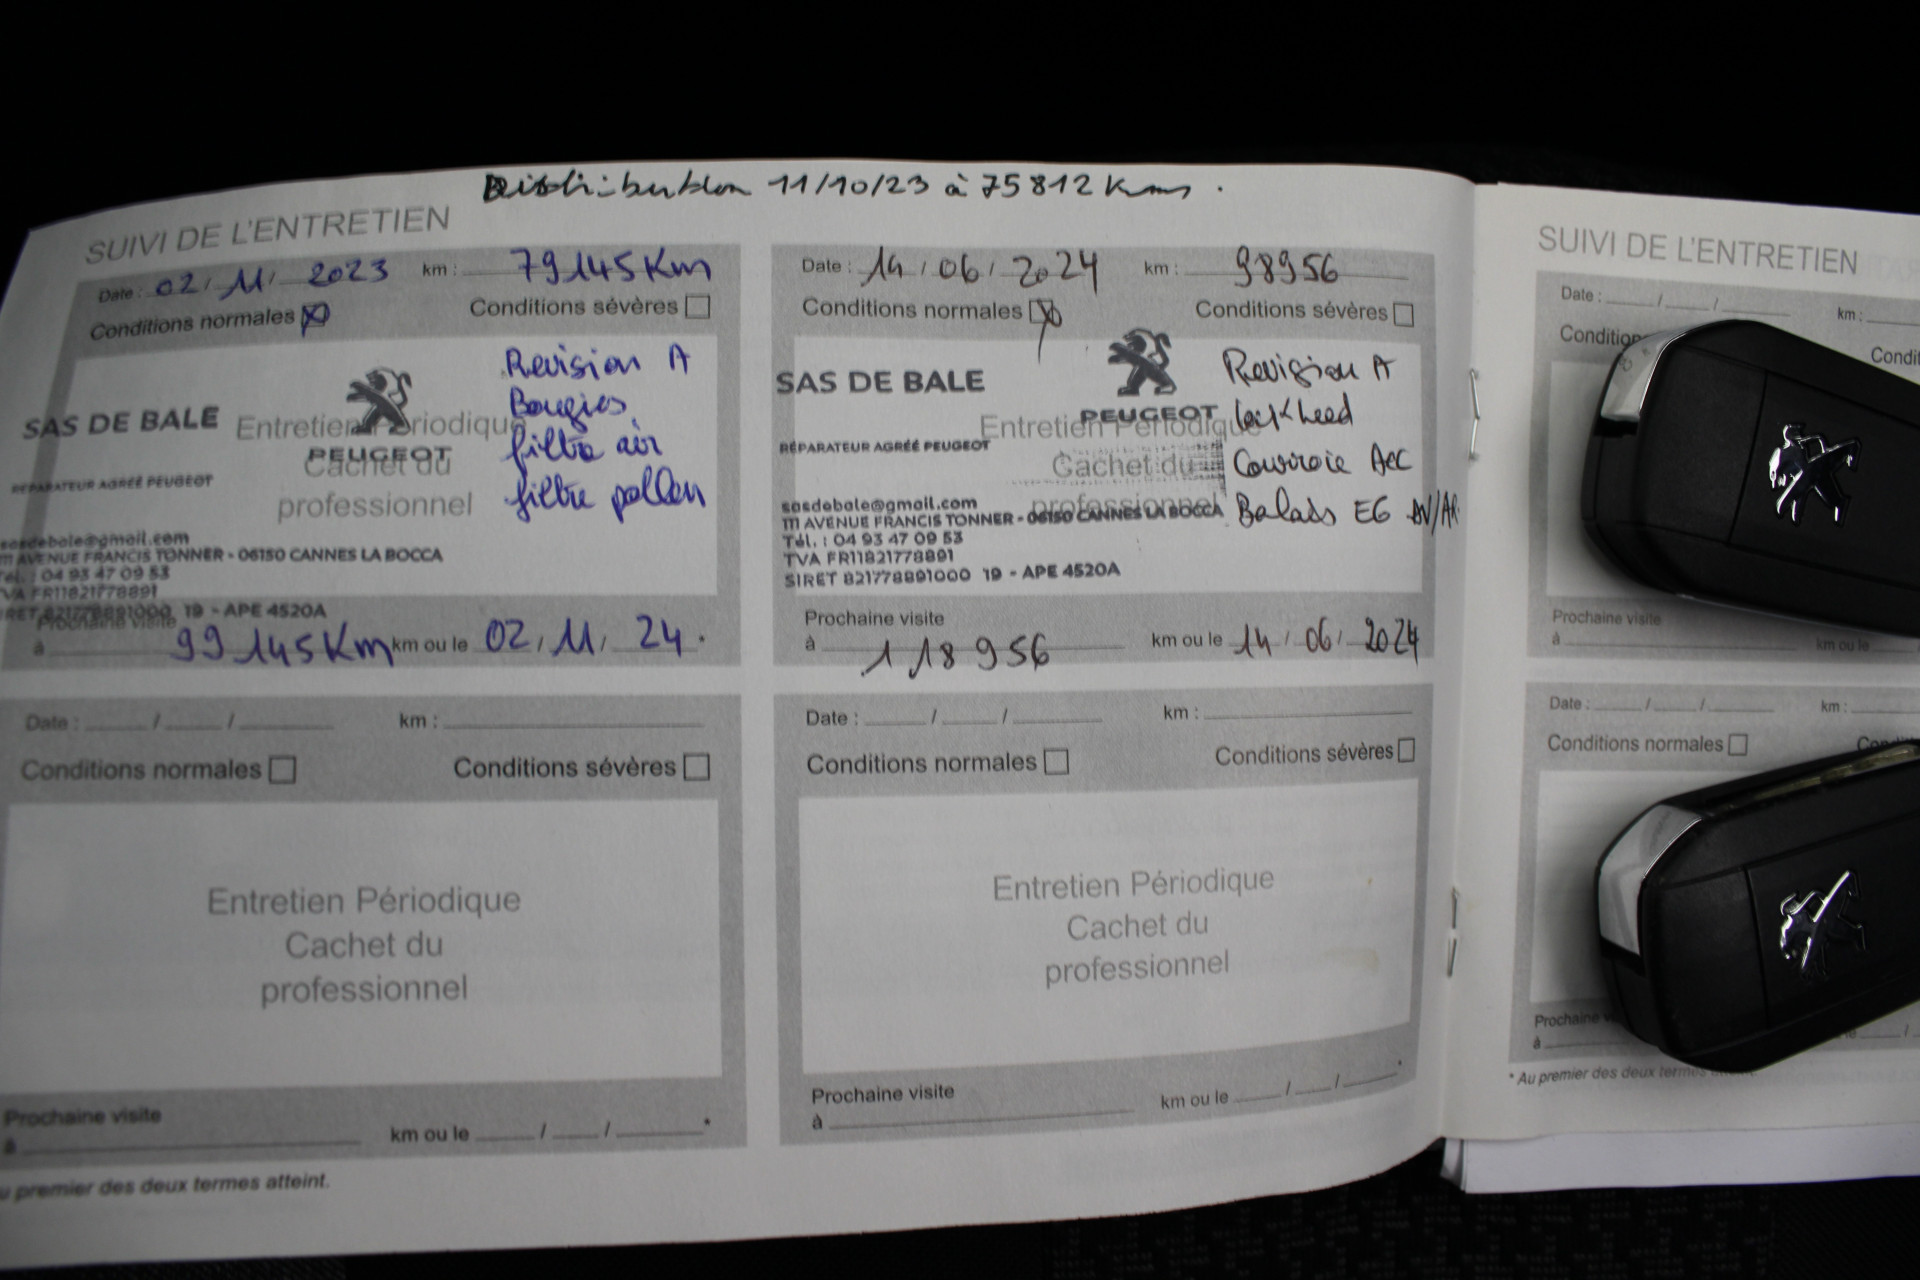 Distribution 11/10/23 à 75812 Kms.
SUIVI DE L'ENTRETIEN
Date : 02/11/2023 km : 79145 Km
Conditions normales Conditions sévères
Revision A
Bougies
filtre air
filtre pollen
SAS DE BALE
PEUGEOT
Entretien Périodique
Cachet du
professionnel
RÉPARATEUR AGRÉÉ PEUGEOT
sasdebale@gmail.com
111 AVENUE FRANCIS TONNER - 06150 CANNES LA BOCCA
Tél. : 04 93 47 09 53
TVA FR11821778891
SIRET 821778891000 19 - APE 4520A
Prochaine visite
à 99145 Km km ou le 02/11/24.
Date : 14/06/2024 km : 98956
Conditions normales Conditions sévères
SAS DE BALE
PEUGEOT
Entretien Périodique
RÉPARATEUR AGRÉÉ PEUGEOT
Cachet du
professionnel
Revision A
lockheed
Courroie Acc
Balais EG AV/AR
sasdebale@gmail.com
111 AVENUE FRANCIS TONNER - 06150 CANNES LA BOCCA
Tél. : 04 93 47 09 53
TVA FR11821778891
SIRET 821778891000 19 - APE 4520A
Prochaine visite
à 118956 km ou le 14/06/2024
Date : / / km :
Conditions normales Conditions sévères
Entretien Périodique
Cachet du
professionnel
Prochaine visite
à km ou le / / *
u premier des deux termes atteint.
Date : / / km :
Conditions normales Conditions sévères
Entretien Périodique
Cachet du
professionnel
Prochaine visite
à km ou le / / *
SUIVI DE L'ENTRETIEN
Date : / / km :
Prochaine visite
à km ou le
Date : / / km :
Conditions normales
Prochaine
à
* Au premier des deux termes